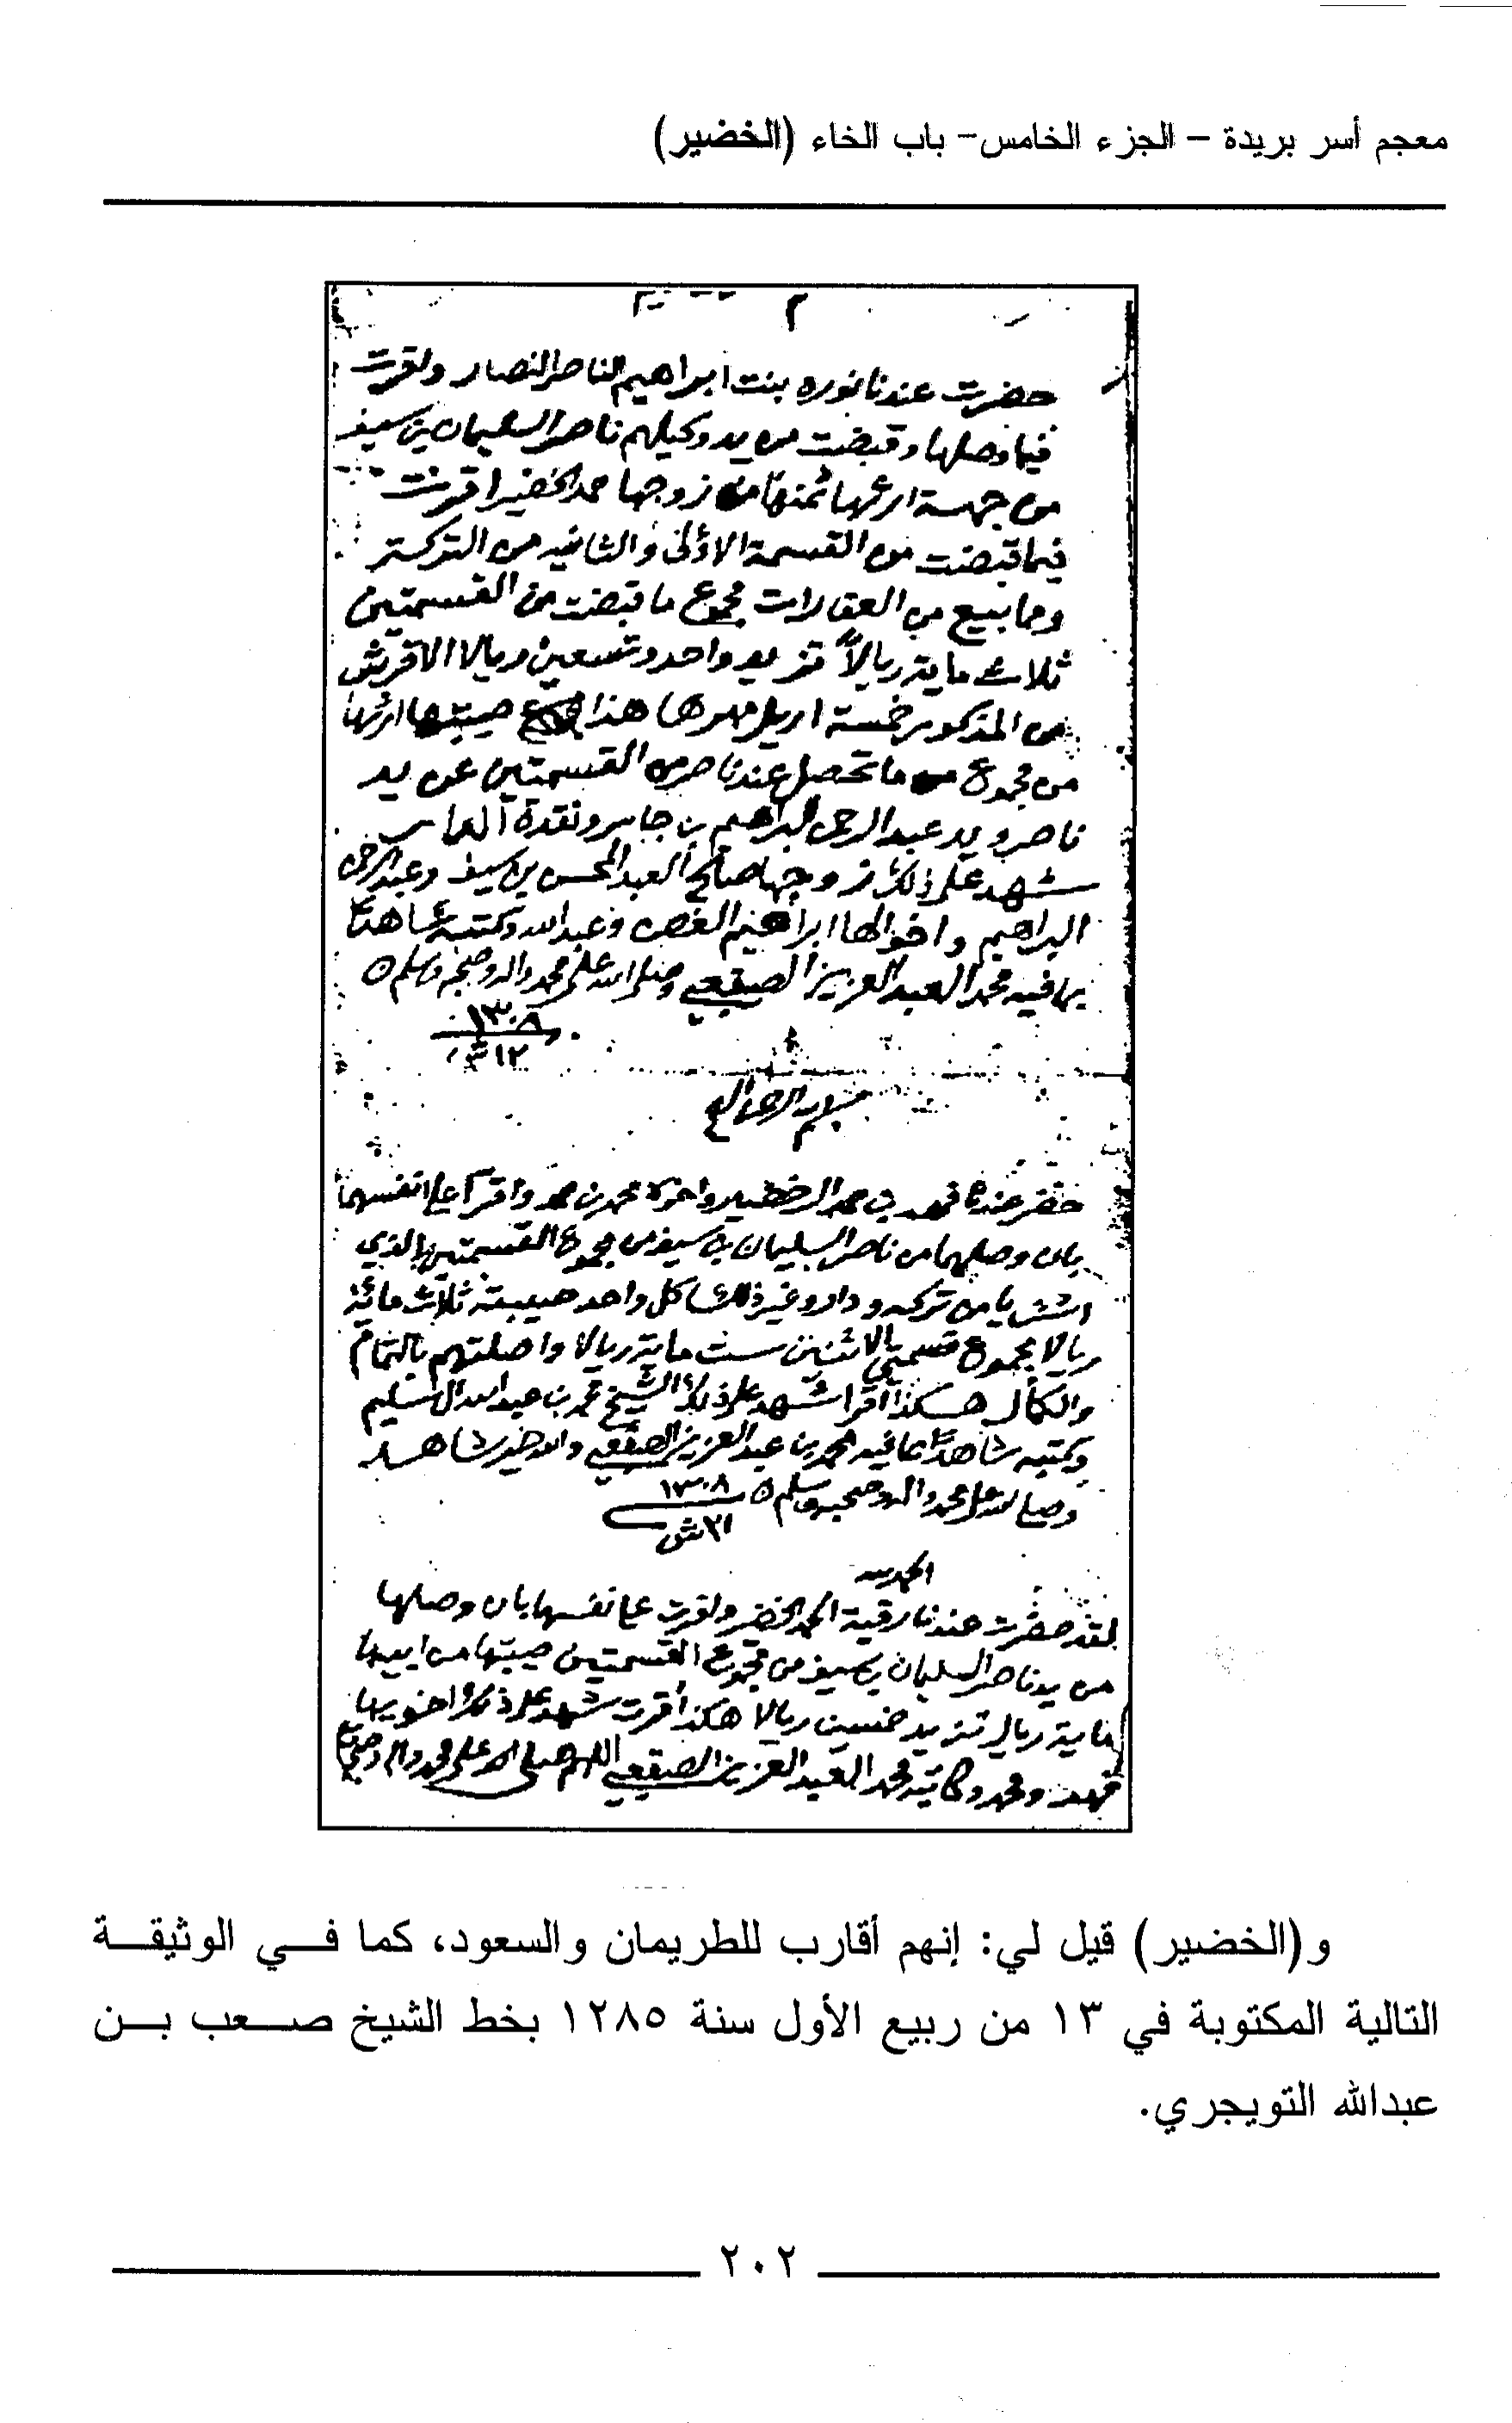 معجم أسر بريدة – الجزء الخامس– باب الخاء (الخضير)
حضرت عندنا نوره بنت ابراهيم الناصر النصار واقرت
فيما وصلها وقبضت من يد وكيلهم ناصر السليمان بن سيف
من جهة ارثها ثمنها من زوجها حمد الخضير اقرت
فيما قبضت من القسمة الاولى والثانيه من التركة
وما بيع من العقارات مجموع ما قبضت من القسمتين
ثلاث ماية ريالاً تزيد واحد وتسعين ريالا الا قرش
من المذكور خمسة اريل مهرها هذا صيبتها ارثها
من مجموع ما تحصل عند ناصر من القسمتين عن يد
ناصر ويد عبدالرحمن البراهيم بن جاسر ونقدة
شهد على ذلك زوجها صالح العبدالمحسن بن سيف وعبدالرحمن
البراهيم واخوالها ابراهيم الغصن وعبدالله وكتبه شاهدًا
بما فيه محمد العبدالعزيز الصقعبي وصلى الله على محمد واله وصحبه وسلم
١٣٠٨
١٢ ش
حضر عندنا فهد بن حمد الخضير واخوه محمد بن حمد واقرا على انفسهما
بان وصلهما من ناصر السليمان بن سيف من مجموع القسمتين الذي
اشتريا من تركه ودار وغير ذلك كل واحد صيبته ثلاث مائة
ريالا مجموع قسمتي الاثنين ست ماية ريالا واصلتهم بالتمام
والكمال هكذا اقرا شهد على ذلك الشيخ محمد بن عبدالله ال سليم
وكتبه شاهدًا بما فيه محمد بن عبدالعزيز الصقعبي والله خير شاهد
وصلى الله على محمد واله وصحبه وسلم ١٣٠٨
٢١ ش
الحمد لله
لقد حضرت عندنا رقية الحمد الخضير واقرت على نفسها بان وصلها
من يد ناصر السليمان بن سيف من مجموع القسمتين صيبتها من ابيها
ماية ريال تزيد خمسين ريالا هكذا أقرت شهد على ذلك اخويها
فهد ومحمد وكاتبه محمد العبدالعزيز الصقعبي اللهم صلى على محمد واله وصحبه
و(الخضير) قيل لي: إنهم أقارب للطريمان والسعود، كما في الوثيقة
التالية المكتوبة في ١٣ من ربيع الأول سنة ١٢٨٥ بخط الشيخ صعب بن
عبدالله التويجري.
٢٠٢